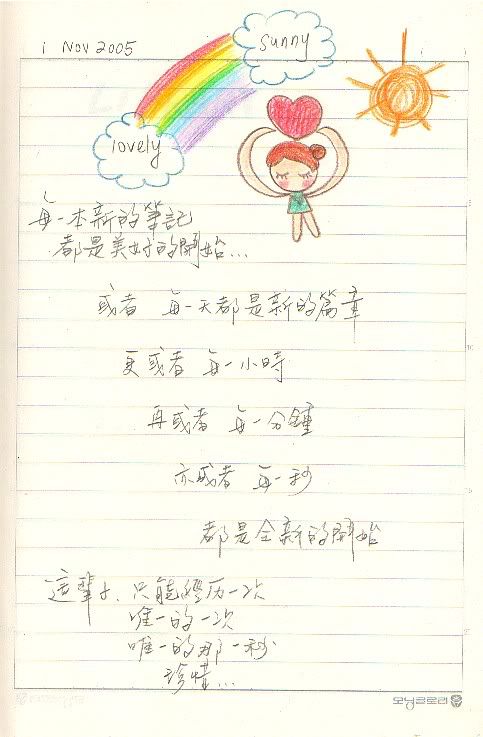 1 Nov 2005
sunny
lovely
每一本新的筆記
都是美好的開始...
或者 每一天都是新的篇章
更或者 每一小時
再或者 每一分鐘
亦或者 每一秒
都是全新的開始
這輩子、只能經历一次
唯一的一次
唯一的那一秒
珍惜...
모닝글로리